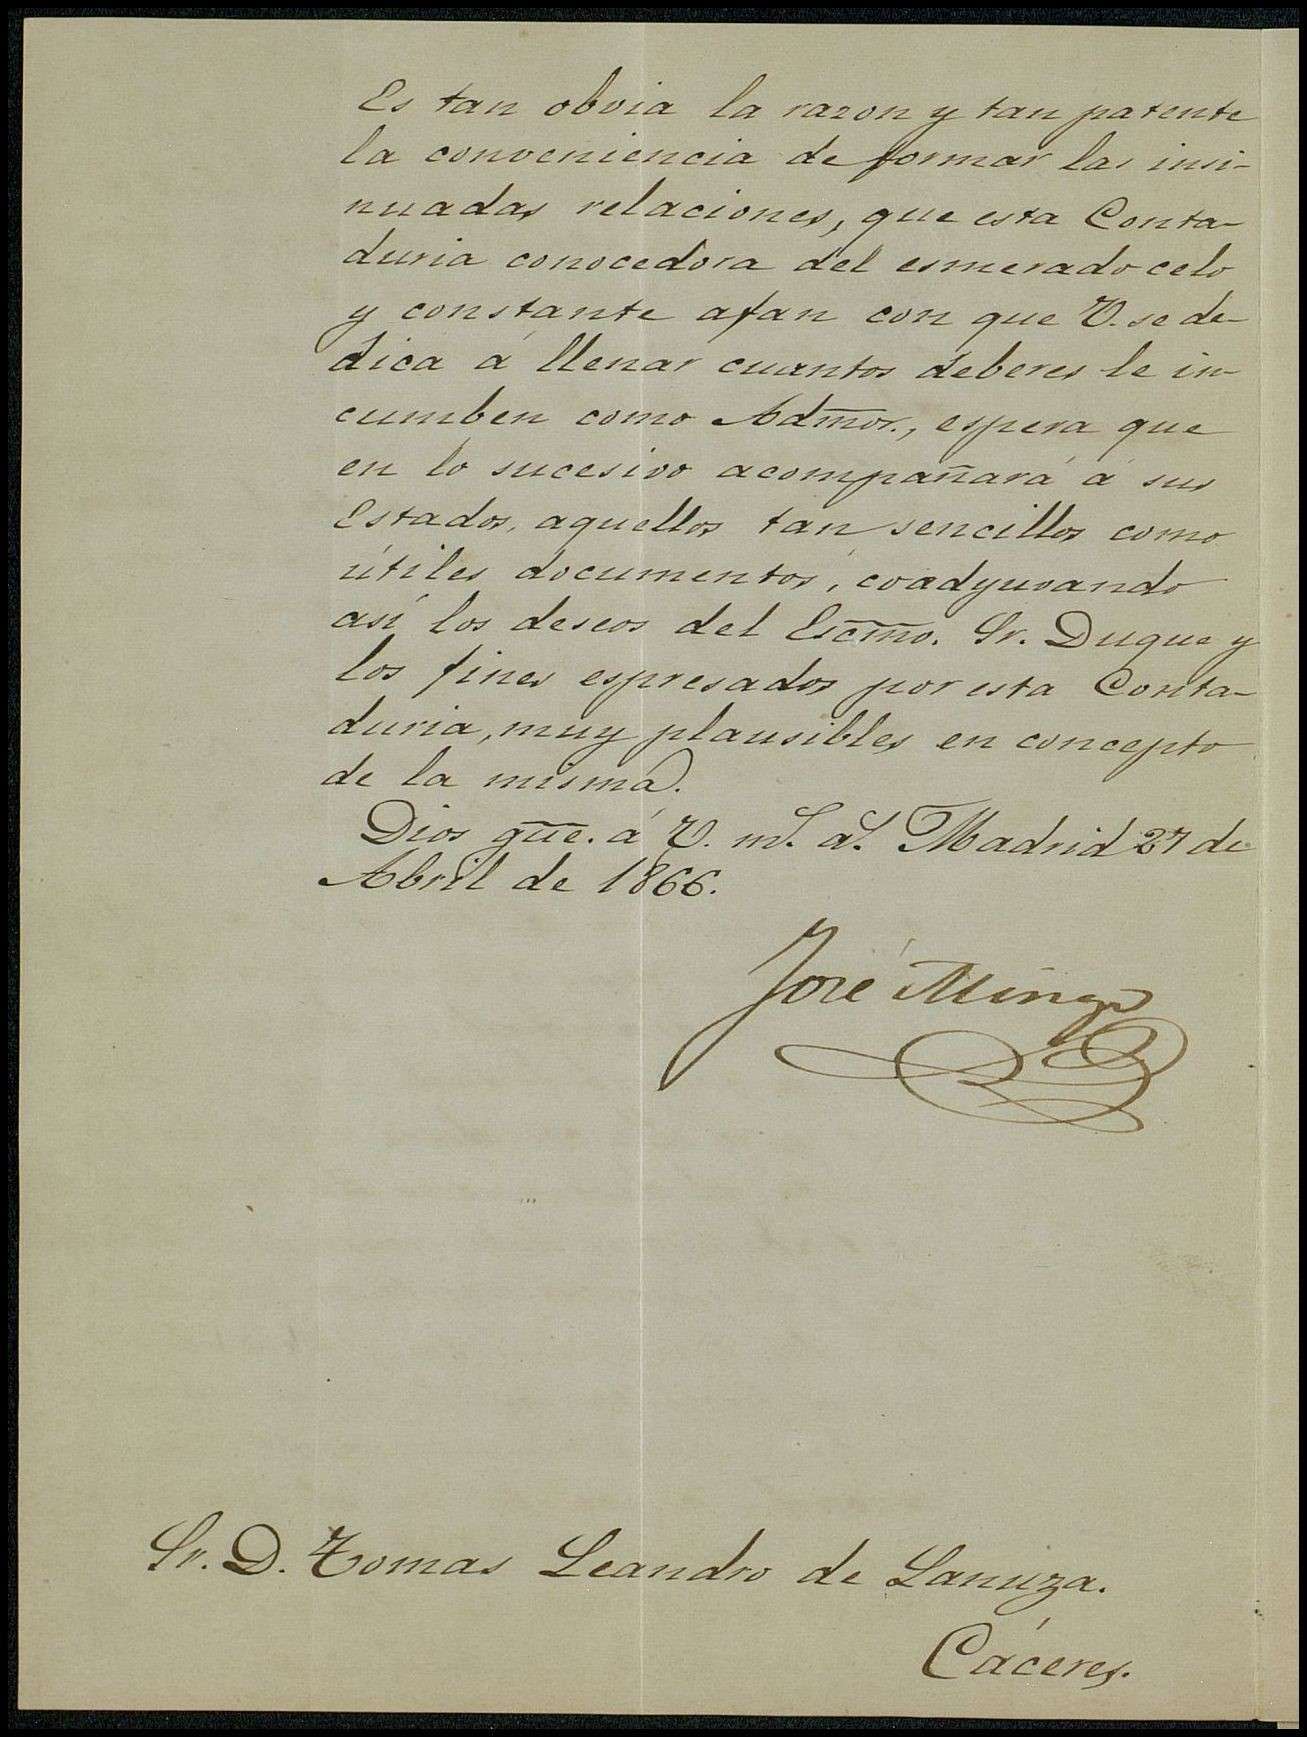 Es tan obvia la razon y tan patente
la conveniencia de formar las insi-
nuadas relaciones, que esta Conta-
duria conocedora del esmerado celo
y constante afan con que V. se de-
dica á llenar cuantos deberes le in-
cumben como Admor., espera que
en lo sucesivo acompañará á sus
Estados, aquellos tan sencillos como
útiles documentos, coadyuvando
así los deseos del Escmo. Sr. Duque y
los fines espresados por esta Conta-
duria, muy plausibles en concepto
de la misma.
Dios gue. á V. ms. as. Madrid 27 de
Abril de 1866.
José Mingo
Sr. D. Tomas Leandro de Lanuza.
Cáceres.